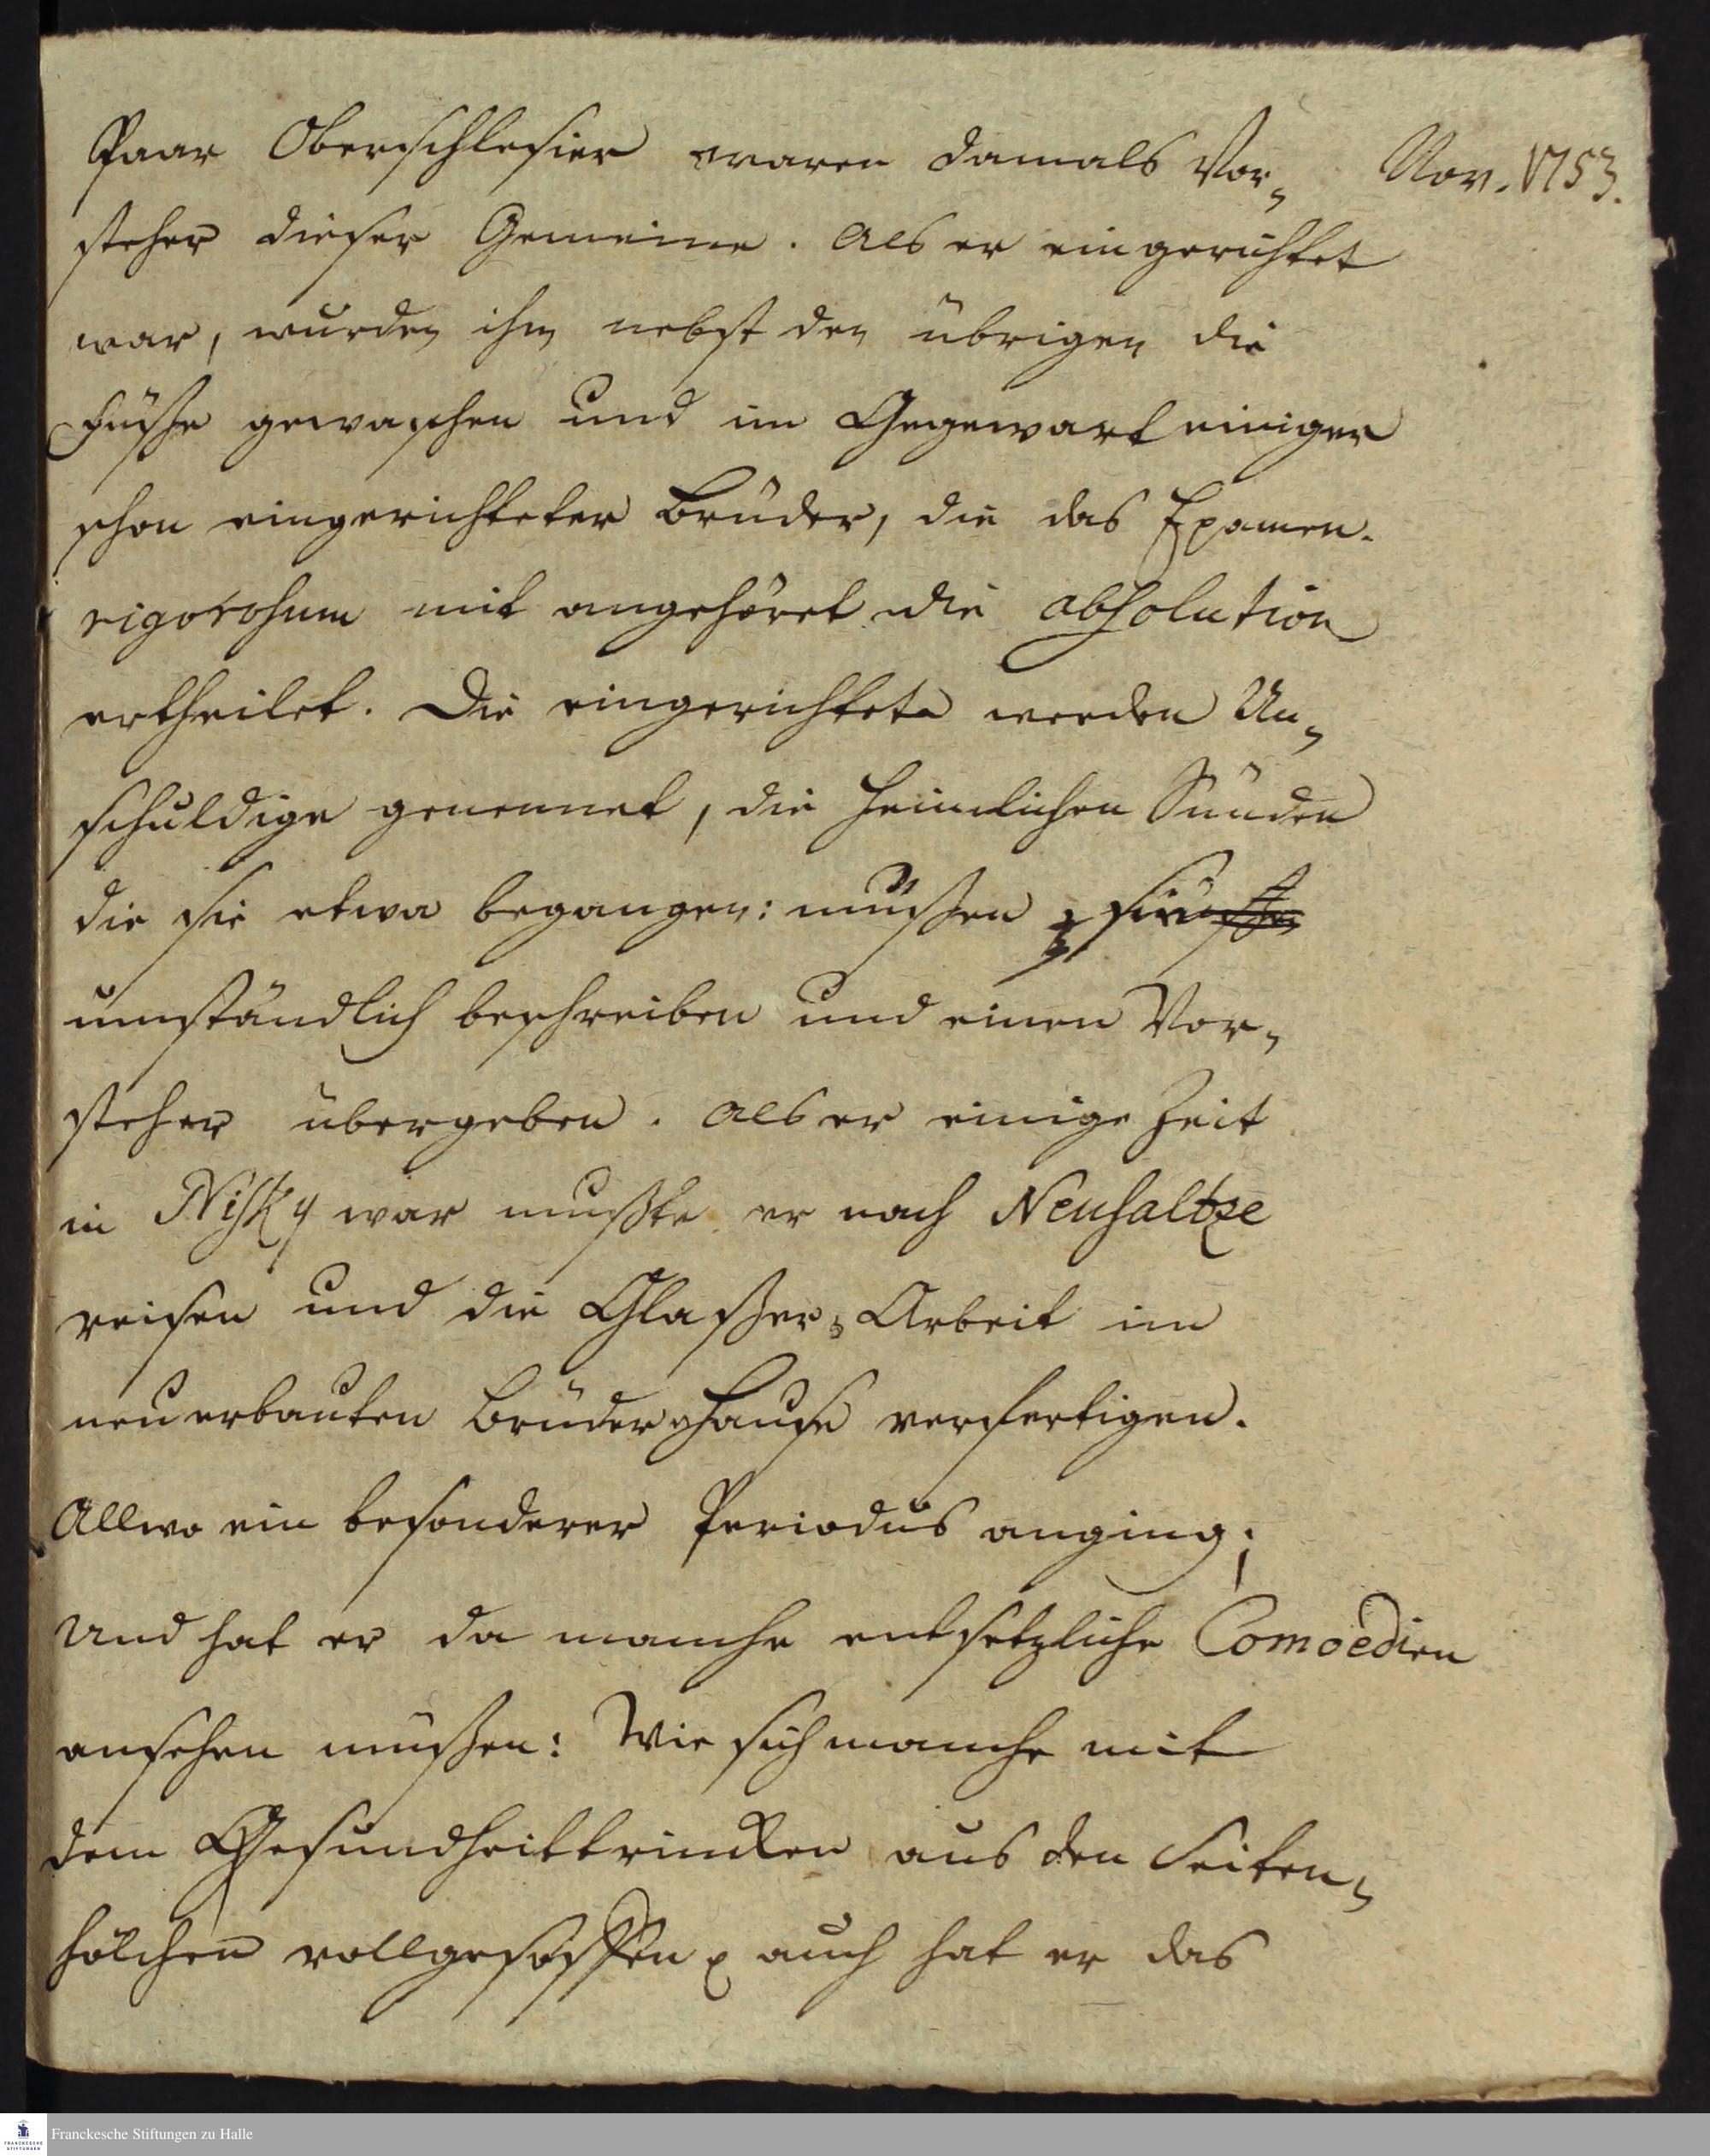 Paar Oberschlesier waren damals Vor-
Nov. 1753.
steher dieser Gemeine. Als er eingerichtet
war, wurden ihm nebst den übrigen die
Füße gewaschen und im Gegewart einiger
schon eingerichteter Brüder, die das Examen.
rigorosum mit angehöret die absolution
ertheilet. Die eingerichtete werden Un-
schuldige genennet, die heimlichen Sünden
die sie etwa begangen: müßen sie
umständlich beschreiben und einen Vor-
steher übergeben. Als er einige Zeit
in Nisky war mußte er nach Neusaltze
reisen und die Glaßer-Arbeit im
neuerbauten Brüder-Hause verfertigen.
Allwo ein besonderer Periodus anging;
Und hat er da manche entsetzliche Comoedien
ansehen müßen: Wie sich manche mit
dem Gesundheittrincken aus den Seiten-
hölchen vollgesoffen auch hat er das
Franckesche Stiftungen zu Halle
FRANCKESCHE
STIFTUNGEN